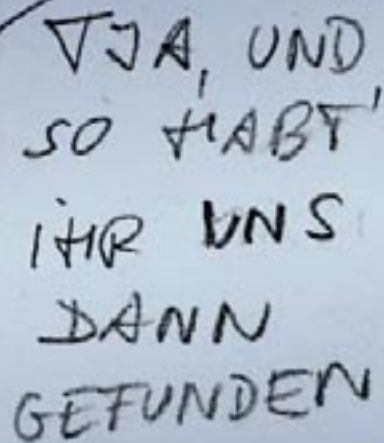 TJA, UND
SO HABT'
IHR UNS
DANN
GEFUNDEN